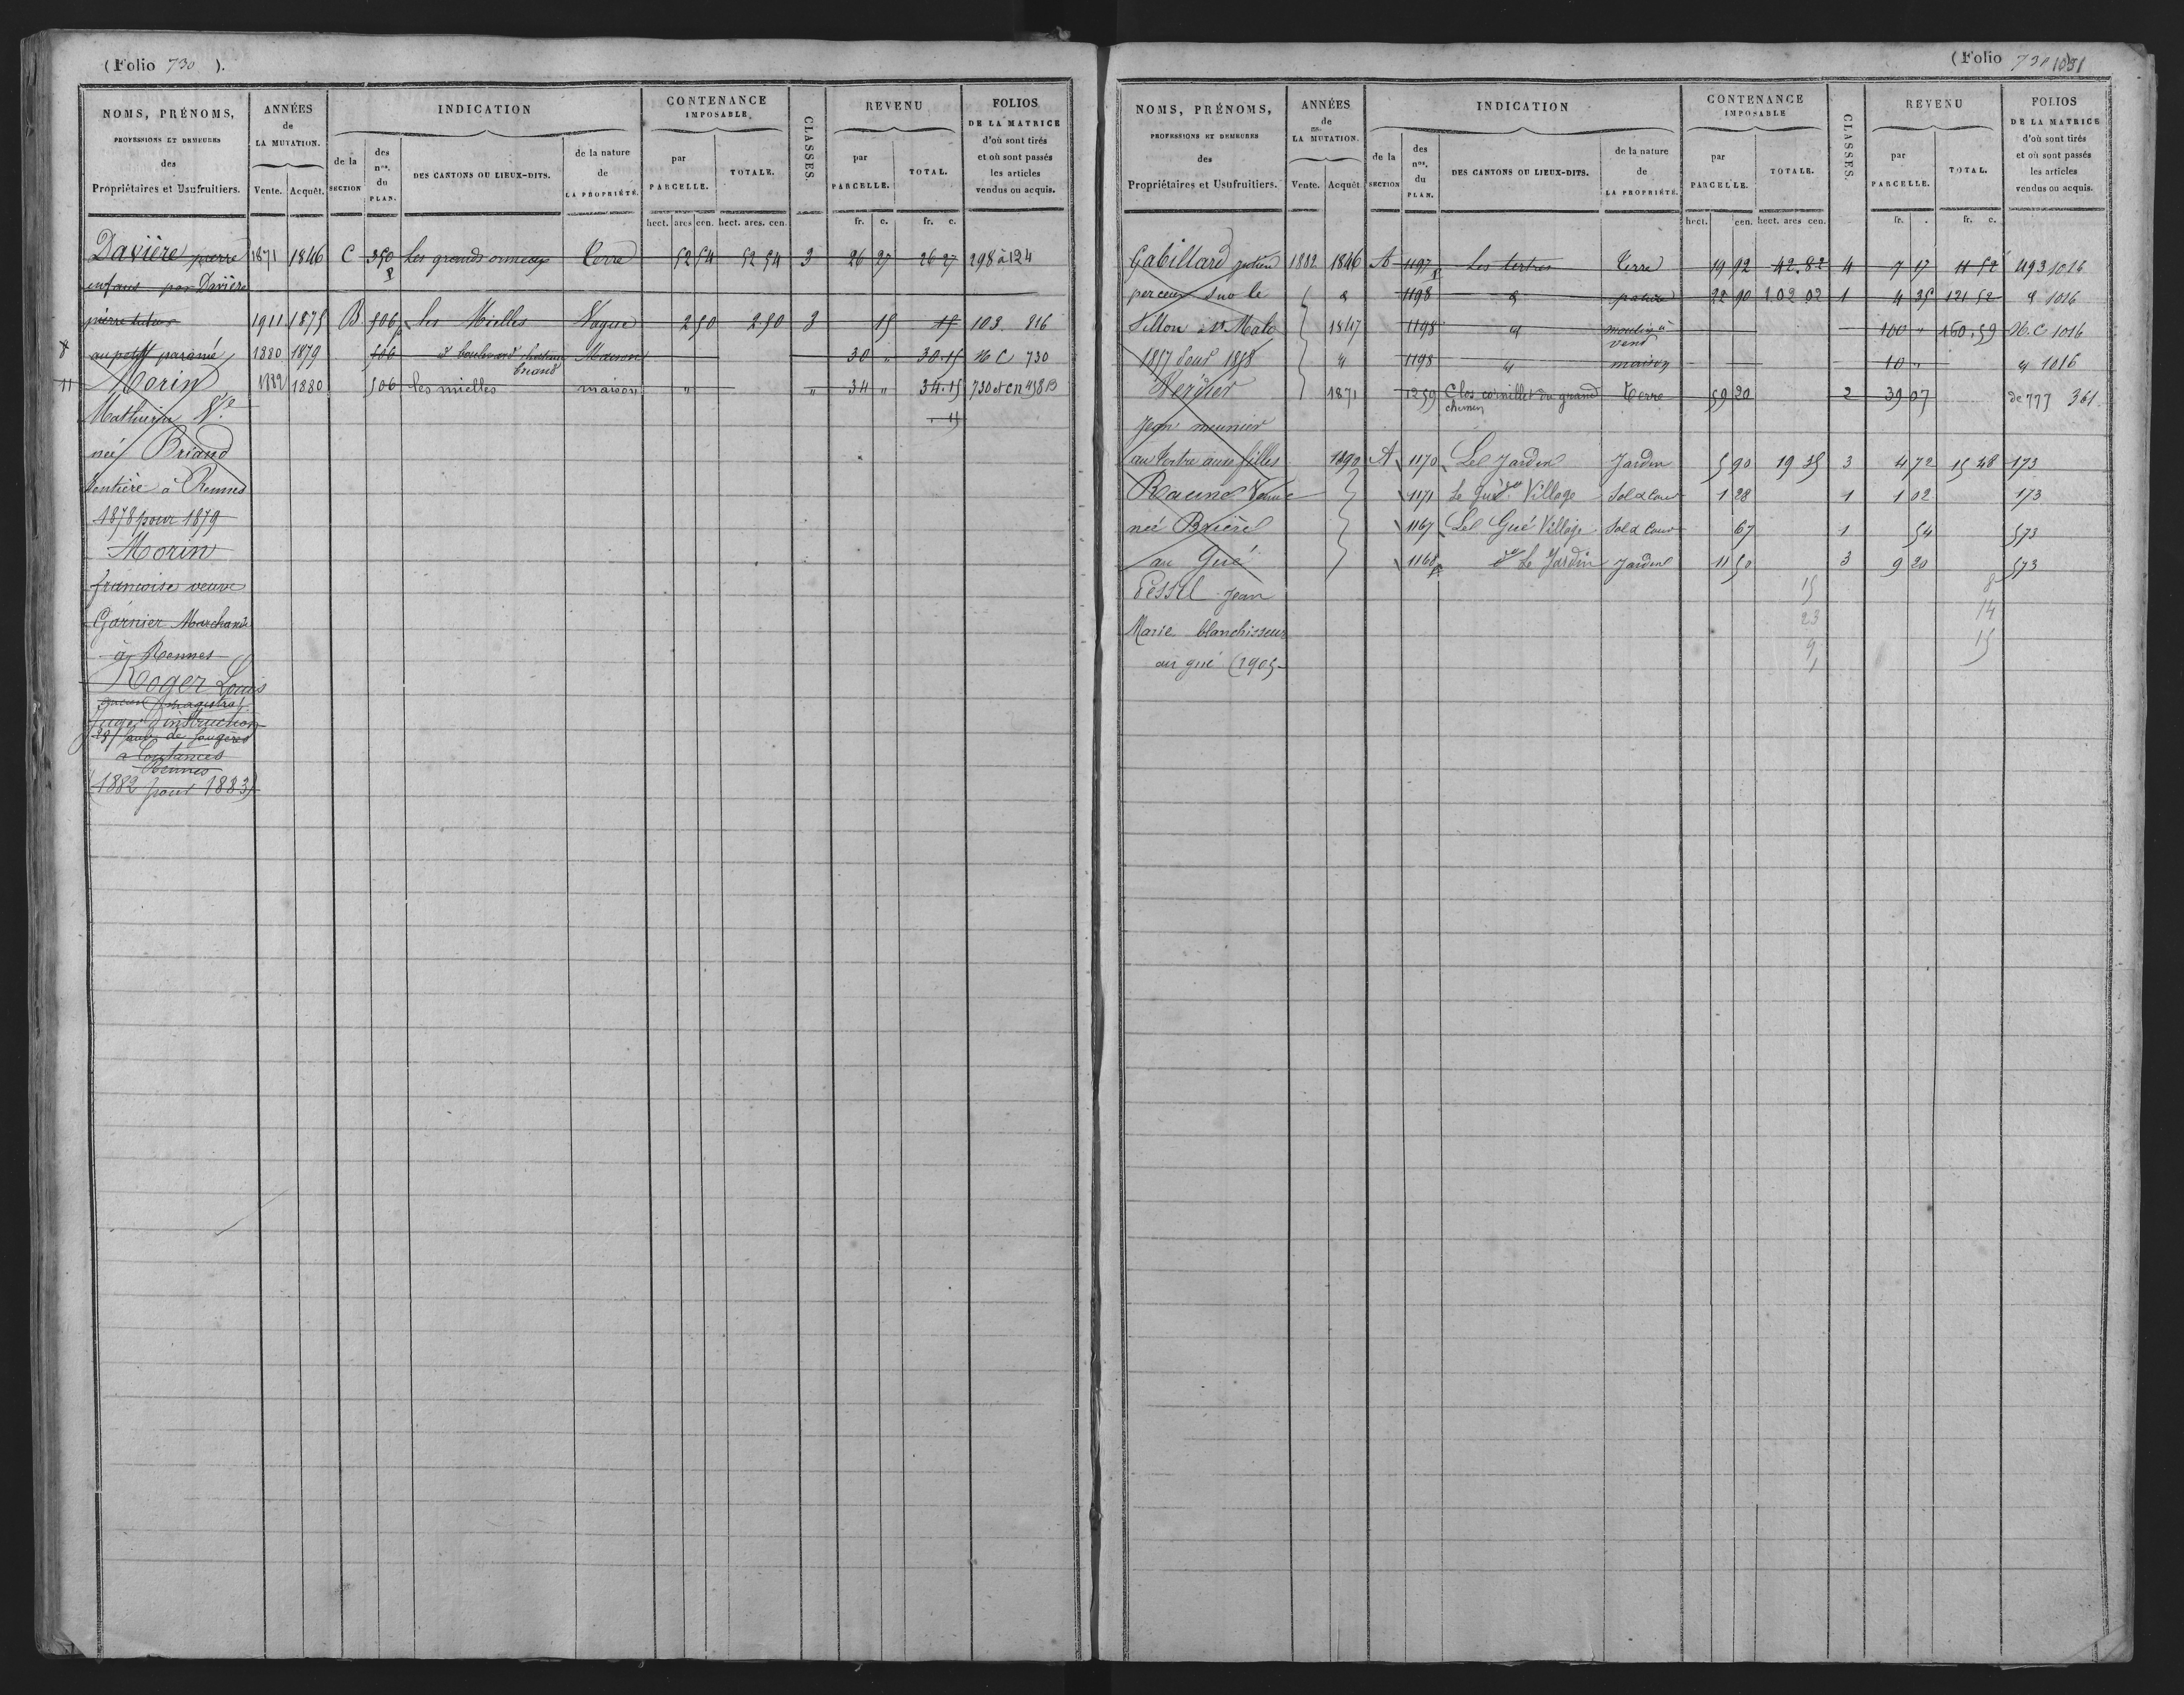 (Folio 730 ).
NOMS, PRÉNOMS,
PROFESSIONS ET DEMEURES
des
Propriétaires et Usufruitiers.
ANNÉES
de
LA MUTATION.
Vente. Acquêt.
INDICATION
de la
SECTION
des
nos.
du
PLAN.
DES CANTONS OU LIEUX-DITS.
de la nature
de
LA PROPRIÉTÉ.
CONTENANCE
IMPOSABLE.
par
PARCELLE.
TOTALE.
CLASSES.
REVENU
par
PARCELLE.
TOTAL.
FOLIOS
DE LA MATRICE
d'où sont tirés
et où sont passés
les articles
vendus ou acquis.
hect. ares cen. hect. ares. cen. fr. c. fr. c.
Davière pierre 1871 1846 C 350 p Les grands ormeaux Terre 52 54 52 54 3 26 27 26 27 298 à 124
enfans par Davière
pierre 1911 1875 B 506 p les Mielles Vague 2 50 2 50 3 15 15 103 816
au petit paramé 1880 1879 506 d boulevard chateau briand Maison 30 " 30.15 N C 730
Morin 1882 1880 506 les mielles maison " " 34 " 34.15 730 et en 458 B
Mathurin Ve 15
née Briand
Rentière à Rennes
1878 pour 1879
Morin
francoise veuve
Garnier Marchande
à Rennes
Roger Louis
ancien magistrat
Juge d'instruction
de fougères
à Coutances
Rennes
(1882 pour 1883)
(Folio 731 1031
NOMS, PRÉNOMS,
PROFESSIONS ET DEMEURES
des
Propriétaires et Usufruitiers.
ANNÉES
de
LA MUTATION.
Vente. Acquêt
INDICATION
de la
SECTION
des
nos.
du
PLAN.
DES CANTONS OU LIEUX-DITS.
de la nature
de
LA PROPRIÉTÉ.
CONTENANCE
IMPOSABLE
par
PARCELLE.
TOTALE.
CLASSES.
REVENU
par
PARCELLE.
TOTAL.
FOLIOS
DE LA MATRICE
d'où sont tirés
et où sont passés
les articles
vendus ou acquis.
hect. cen. hect. ares cen. fr. . fr. c.
Gabillard 1882 1846 A 1197 p Les tertres Terre 19 92 42.82 4 7 17 11 52 493 1016
perceur sur le d 1198 d 22 90 1 02 02 1 4 35 121 52 d 1016
Sillon St Malo 1847 1198 d moulin à vend 100 " 160.59 N. C 1016
1857 pour 1858 " 1198 " maison 10 " " 1016
Vergier 1871 1259 Clos cornillet du grand chemin Terre 59 20 2 39 07 de 777 361
Jean meunier
au tertre aux filles 1890 A 1170 Le Jardin Jardin 5 90 19 35 3 4 72 15 48 173
Raune Veuve 1171 Le Gué Village Sol & Cour 1 28 1 1 02 173
née Brierel 1167 Le Gué Village Sol & Cour 67 1 54 573
au Gué 1168 p Le Jardin Jardin 11 50 3 9 20 573
Tessel Jean 15 8
Marie blanchisseur 23 14
au gué (1905 9 15